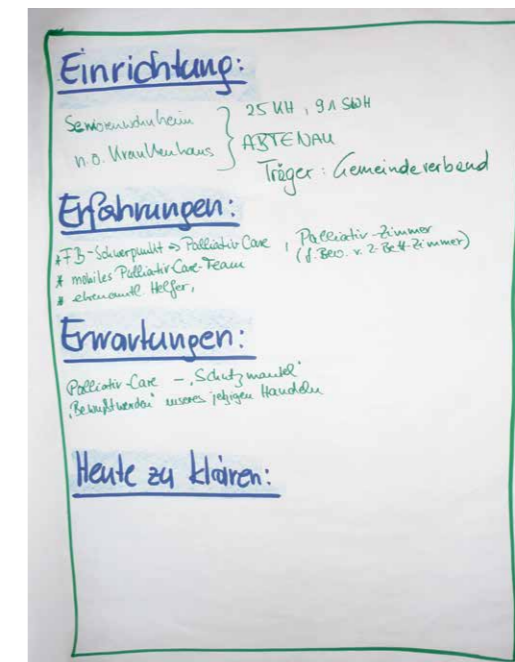 Einrichtung:
Seniorenwohnheim } 25 KH, 91 SWH
n.ö. Krankenhaus } ABTENAU
Träger: Gemeindeverband
Erfahrungen:
* FB-Schwerpunkt => Palliativ Care, Palliativ-Zimmer
(f. Bew. v. 2-Bett-Zimmer)
* mobiles Palliativ Care-Team
* ehrenamtl. Helfer,
Erwartungen:
Palliativ-Care – „Schutzmantel"
„Bewußtwerden" unseres jetzigen Handeln
Heute zu klären: